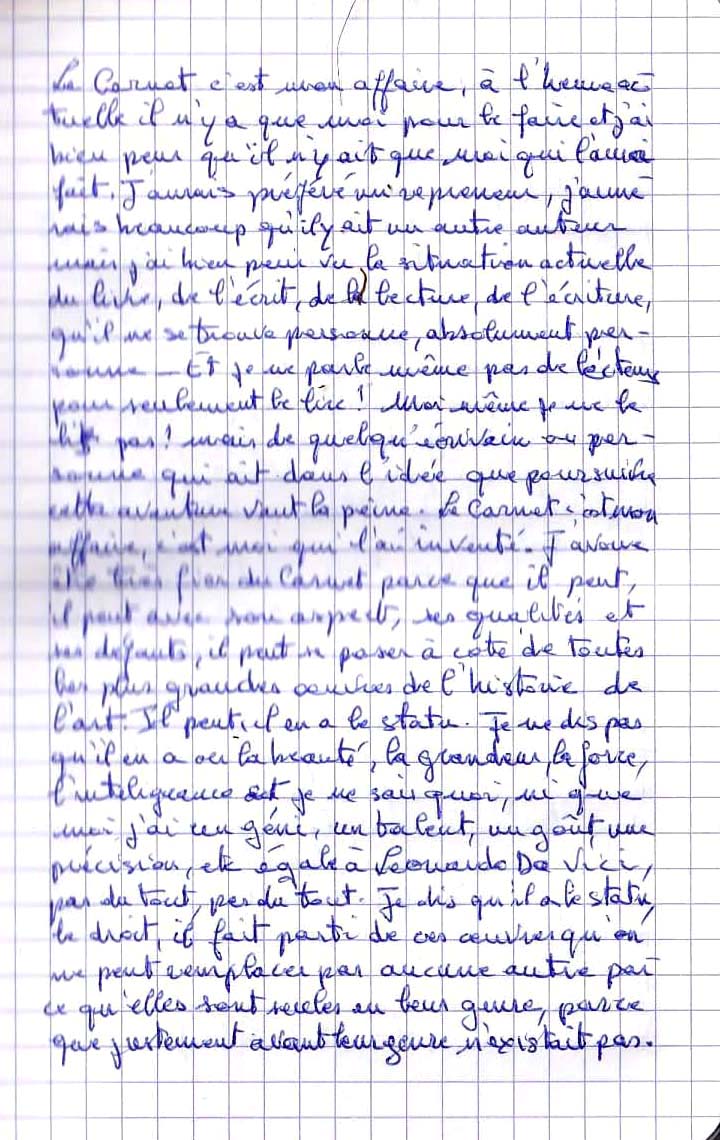 Le Carnet c'est mon affaire, à l'heure ac-
tuelle il n'y a que moi pour le faire et j'ai
bien peur qu'il n'y ait que moi qui l'aura
fait. J'aurais préféré un repreneur, j'aime-
rais beaucoup qu'il y ait un autre auteur
mais j'ai bien peur vu la situation actuelle
du livre, de l'écrit, de la lecture, de l'écriture,
qu'il ne se trouve personne, absolument per-
sonne — Et je ne parle même pas de lecteurs
pour seulement le lire! Moi même je ne le
lis pas! mais de quelqu'écrivain ou per-
sonne qui ait dans l'idée que poursuivre
cette aventure vaut la peine. Le Carnet c'est mon
affaire, c'est moi qui l'ai inventé. J'avoue
être très fier du Carnet parce que il peut,
il peut avec son aspect, ses qualités et
ses défauts, il peut se poser à côté de toutes
les plus grandes oeuvres de l'histoire de
l'art. Il peut, il en a le statu. Je ne dis pas
qu'il en a la beauté, la grandeur, la force,
l'inteligeance et je ne sais quoi, ni que
moi j'ai un géni, un talent, un goût, une
précision, etc égale à Leonardo Da Vici,
pas du tout, pas du tout. Je dis qu'il a le statu,
le droit, il fait parti de ces oeuvres qu'on
ne peut remplacer par aucune autre par
ce qu'elles sont seules en leur genre, parce
que justement avant leur genre n'existait pas.